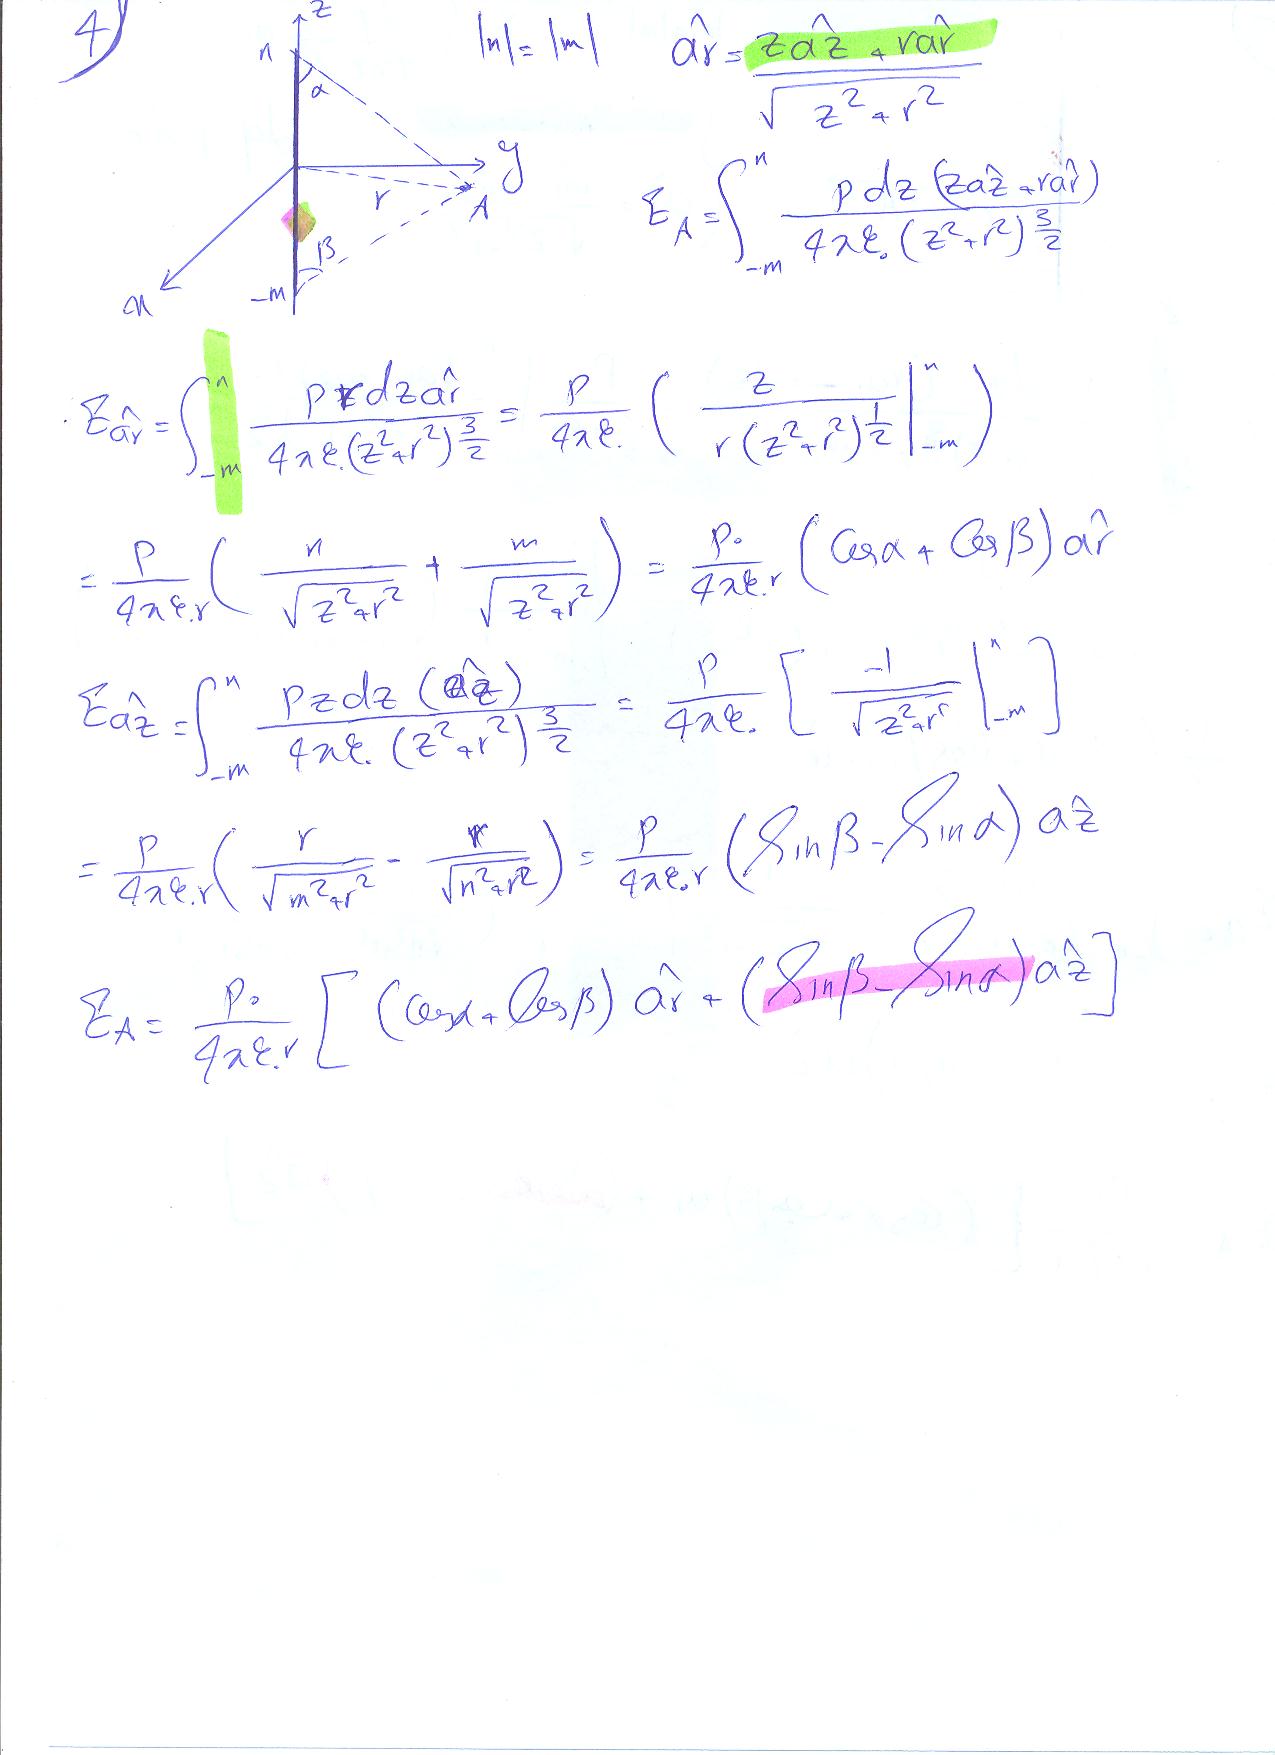 4)
z
n
α
y
r
A
β
-m
x
|n| = |m|
âr = (zâz + râr) / √(z² + r²)
E_A = ∫_{-m}^{n} ρ dz (zâz + râr) / 4πε₀(z² + r²)^{3/2}
E_âr = ∫_{-m}^{n} ρ r dz âr / 4πε₀(z² + r²)^{3/2} = ρ/4πε₀ ( z / r(z² + r²)^{1/2} |_{-m}^{n} )
= ρ/4πε₀r ( n/√(z² + r²) + m/√(z² + r²) ) = ρ₀/4πε₀r (Cosα + Cosβ) âr
E_âz = ∫_{-m}^{n} ρ z dz (âz) / 4πε₀(z² + r²)^{3/2} = ρ/4πε₀ [ -1/√(z² + r²) |_{-m}^{n} ]
= ρ/4πε₀r ( r/√(m² + r²) - r/√(n² + r²) ) = ρ/4πε₀r (Sinβ - Sinα) âz
E_A = ρ₀/4πε₀r [ (Cosα + Cosβ) âr + (Sinβ - Sinα) âz ]